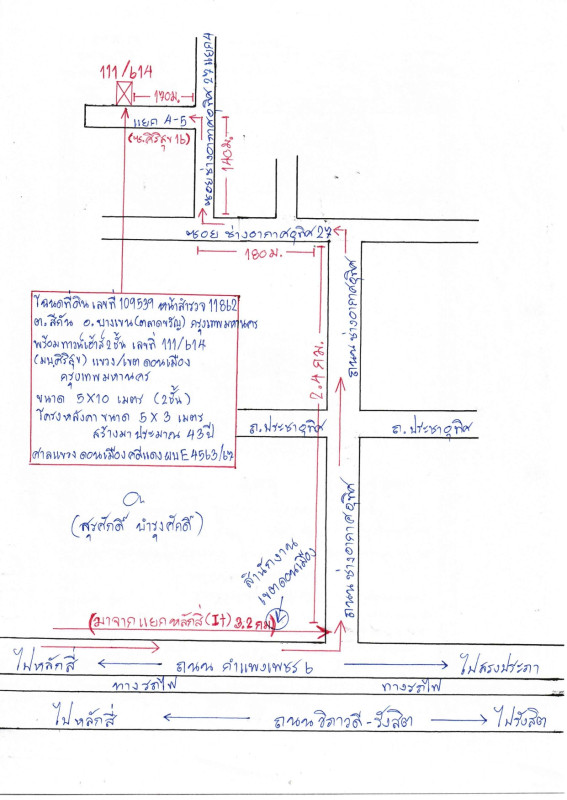 111/614
170 ม.
แยก A-5
(ม.ศิริสุข 16)
ซอย ช่างอากาศอุทิศ 27 แยก 4
140 ม.
ซอย ช่างอากาศอุทิศ 27
180 ม.
โฉนดที่ดิน เลขที่ 109539 หน้าสำรวจ 11862
ต.สีกัน อ.บางเขน(ตลาดขวัญ) กรุงเทพมหานคร
พร้อมทาวน์เฮ้าส์ 2 ชั้น เลขที่ 111/614
(ม.ศิริสุข) แขวง/เขต ดอนเมือง
กรุงเทพมหานคร
ขนาด 5X10 เมตร (2ชั้น)
โครงหลังคา ขนาด 5X3 เมตร
สร้างมา ประมาณ 43 ปี
ศาลแขวง ดอนเมือง คดีแดง ผบ E 4563/67
ถนน ช่างอากาศ อุทิศ
2.4 กม.
ถ. ประชาอุทิศ
ถ. ประชาอุทิศ
(สุรศักดิ์ บำรุงศักดิ์)
ถนน ช่างอากาศ อุทิศ
สำนักงาน
เขตดอนเมือง
(มาจาก แยก หลักสี่ (It) 3.2 กม)
ไปหลักสี่ ถนน กำแพงเพชร 6 ไปสรงประภา
ทางรถไฟ ทางรถไฟ
ไปหลักสี่ ถนนวิภาวดี-รังสิต ไปรังสิต